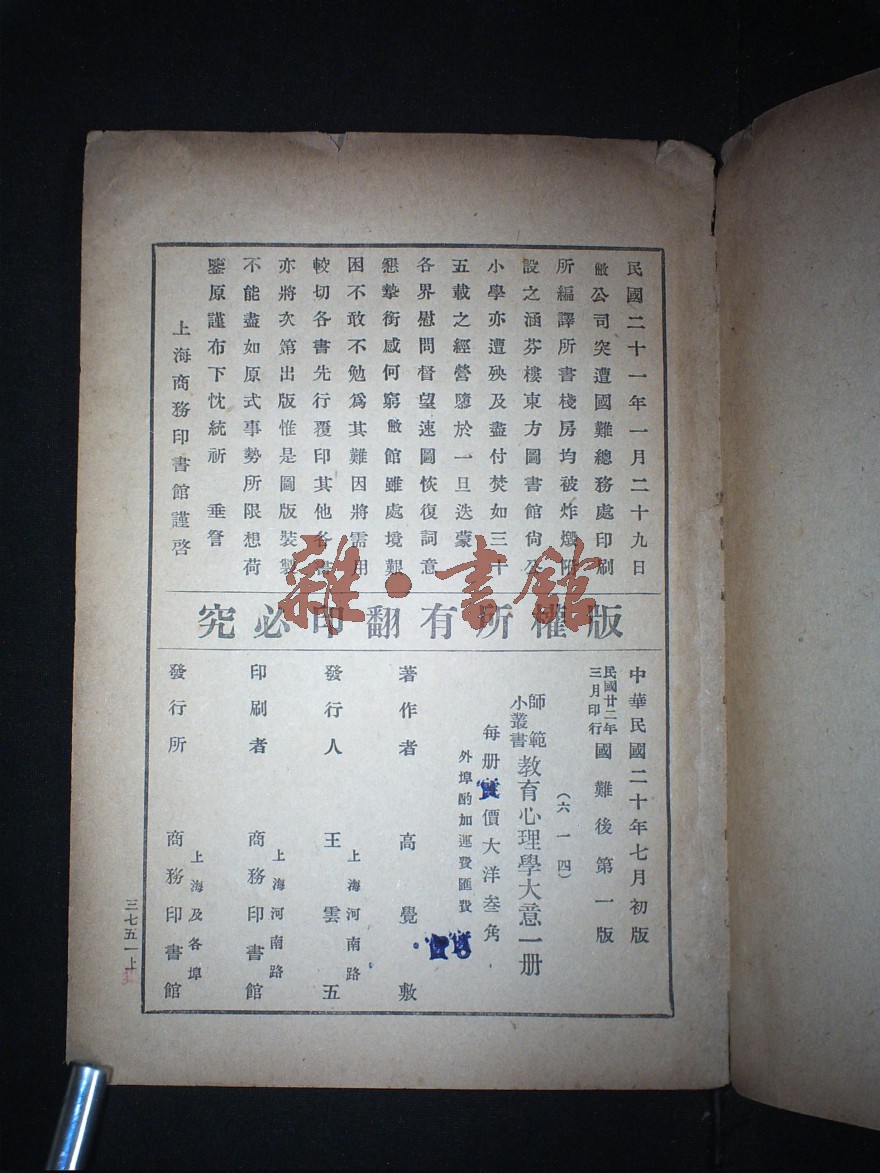 民國二十一年一月二十九日
敝公司突遭國難總務處印刷
所編譯所書棧房均被炸燬附
設之涵芬樓東方圖書館尙公
小學亦遭殃及盡付焚如三十
五載之經營隳於一旦迭蒙
各界慰問督望速圖恢復詞意
懇摯銜感何窮敝館雖處境艱
困不敢不勉爲其難因將需用
較切各書先行覆印其他各書
亦將次第出版惟是圖版裝製
不能盡如原式事勢所限想荷
鑒原謹布下忱統祈 垂詧
上海商務印書館謹啓
究必印翻有所權版
雜·書館
中華民國二十年七月初版
民國廿二年三月印行 國難後第一版
(六一四)
師範小叢書 教育心理學大意一册
每册實價大洋叁角
外埠酌加運費匯費
著作者 高覺敷
發行人 王雲五
上海河南路
印刷者 商務印書館
上海河南路
發行所 商務印書館
上海及各埠
三七五一上